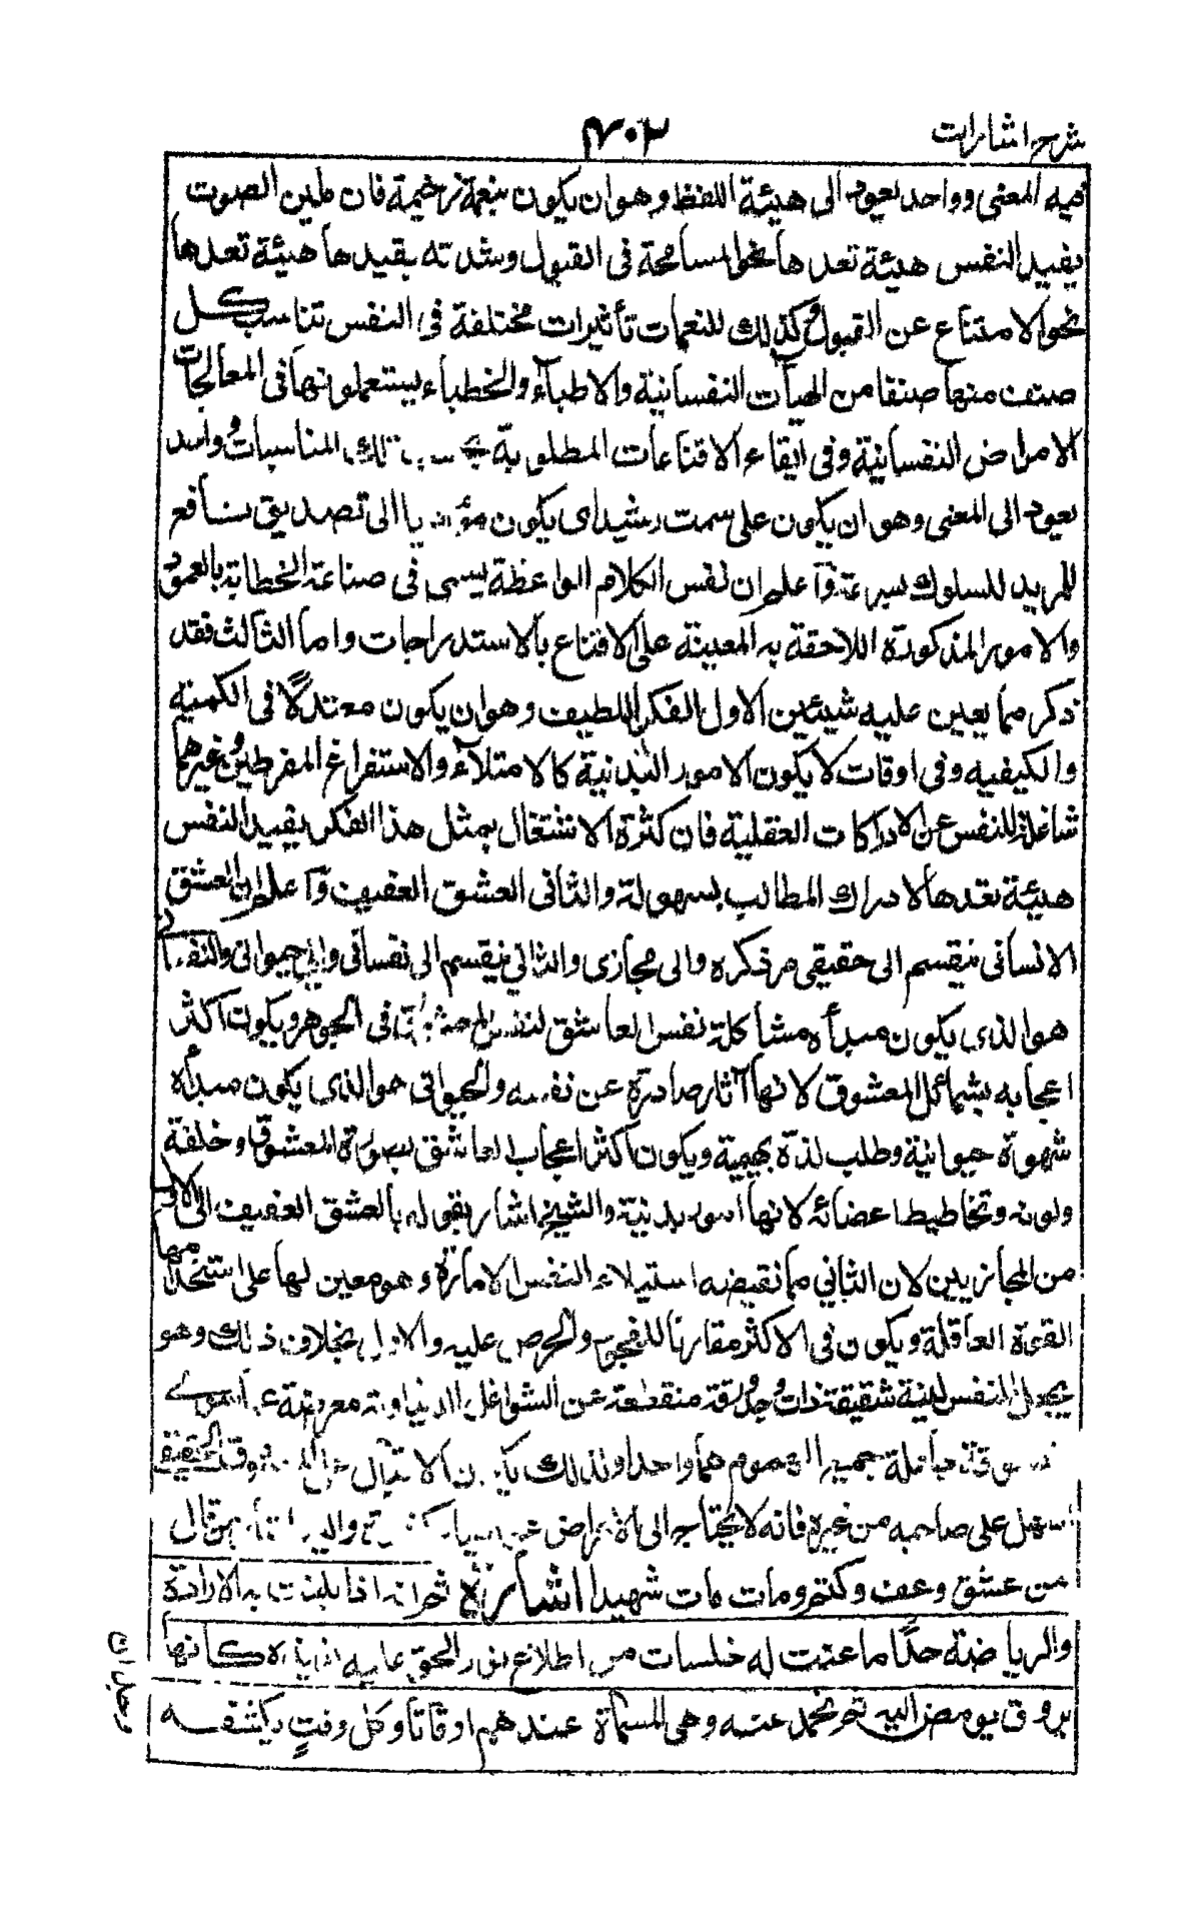 شرح اشارات
فيه المعنى وواحد يعود الى هيئة اللفظ وهو ان يكون بنغمة رخيمة فان لين الصوت
يفيد النفس هيئة تعدها نحو المسامحة فى القبول وشدته يفيدها هيئة تعدها
نحو الامتناع عن القبول وكذلك للنغمات تأثيرات مختلفة فى النفس تناسب كل
صنف منها صنفا من الهيآت النفسانية والاطباء والخطباء يستعملونها فى المعالجات
الامراض النفسانية وفى ايقاع الاقناعات المطلوبة بحسب تلك المناسبات وواحد
يعود الى المعنى وهو ان يكون على سمت رشيد اى يكون مؤديا الى تصديق نافع
للمريد للسلوك بسرعة وآعلم ان نفس الكلام الواعظة يسمى فى صناعة الخطابة بالعمود
والامور المذكورة اللاحقة به المعينة على الاقناع بالاستدراجات واما الثالث فقد
ذكر مما يعين عليه شيئين الاول الفكر اللطيف وهو ان يكون معتدلًا فى الكمية
والكيفيه وفى اوقات لا يكون الامور البدنية كالامتلآء والاستفراغ المفرطين وغيرهما
شاغلة للنفس عن الادراكات العقلية فان كثرة الاشتغال بمثل هذا الفكر يفيد النفس
هيئة تعدها لادراك المطالب بسهولة والثانى العشق العفيف وآعلم ان العشق
الانسانى ينقسم الى حقيقى مر ذكره والى مجازى والثانى ينقسم الى نفسانى والى حيوانى والنفسانى
هو الذى يكون مبدأه مشاكلة نفس العاشق لنفس المعشوق فى الجوهر ويكون اكثر
اعجابه بشمائل المعشوق لانها آثار صادرة عن نفسه والحيوانى هو الذى يكون مبدأه
شهوة حيوانية وطلب لذة بهيمية ويكون اكثر اعجاب العاشق بصورة المعشوق وخلقة
ولونه وتخاطيط اعضائه لانها امور بدنية والشيخ اشار بقوله بالعشق العفيف الى الاول
من المجازيين لان الثانى مما نقيضه استيلاء النفس الامارة وهو معين لها على استخدامها
القوة العاقلة ويكون فى الاكثر مقارنا للفجور والحرص عليه والاول بخلاف ذلك وهو
يجعل النفس لينة شفيقة ذات وجد ورقة منقطعة عن الشواغل الدنياوية معرضة عما سوى
معشوقه جاعلة جميع الهموم هما واحدا ولذلك يكون الاقبال على المعشوق الحقيقى
اسهل على صاحبه من غيره فانه لا يحتاج الى الاعراض عن اشياء كثيرة واليه اشار من قال
من عشق وعف وكتم ومات مات شهيدا اشارة ثم انه اذا بلغت به الارادة
والرياضة حدًّا ما عنت له خلسات من اطلاع نور الحق عليه لذيذة كانها
بروق يومض اليه ثم تخمد عنه وهى المسماة عندهم اوقاتا وكل وقتٍ يكنفه
وجدان